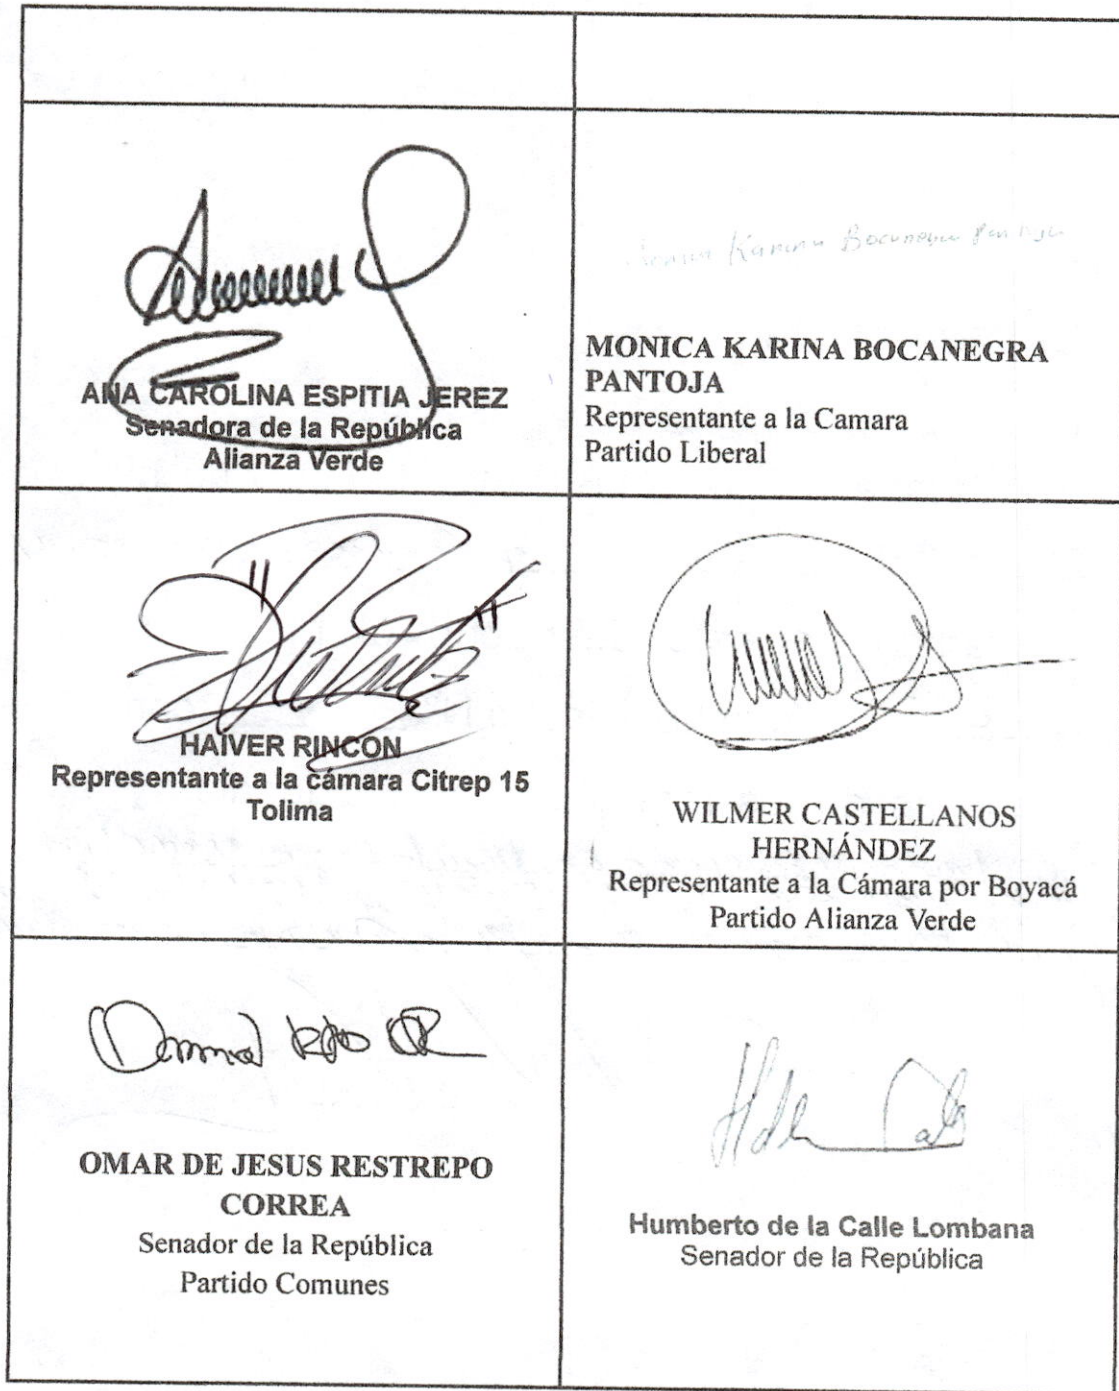 Karina Bocanegra Pantoja
ANA CAROLINA ESPITIA JEREZ
Senadora de la República
Alianza Verde
MONICA KARINA BOCANEGRA
PANTOJA
Representante a la Camara
Partido Liberal
HAIVER RINCON
Representante a la cámara Citrep 15
Tolima
WILMER CASTELLANOS
HERNÁNDEZ
Representante a la Cámara por Boyacá
Partido Alianza Verde
OMAR DE JESUS RESTREPO
CORREA
Senador de la República
Partido Comunes
Humberto de la Calle Lombana
Senador de la República